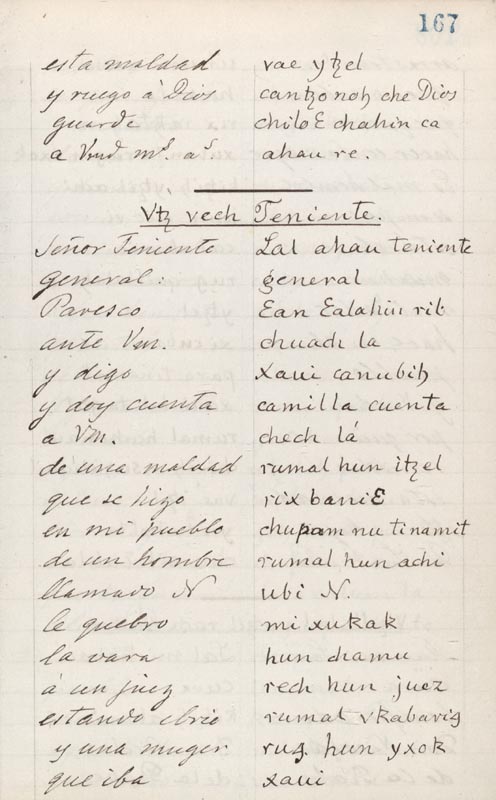 167
esta maldad vae ytzel
y ruego à Dios cantzonoh che Dios
guarde chiloE chahin ca
a Vmd ms. as. ahau re.
Vtz vech Teniente.
Señor Teniente Lal ahau teniente
general: general
Paresco Ean Ealahin rib
ante Vm. chuach la
y digo xaui canubih
y doy cuenta camilla cuenta
a Vm. chech lá
de una maldad rumal hun itzel
que se hizo rix baniE
en mi pueblo chupam nu tinamit
de un hombre rumal hun achi
llamado N ubi N.
le quebro mi xukak
la vara hun chamu
à un juez rech hun juez
estando ebrio rumal vkabaris
y una muger ruq hun yxok
que iba xaui